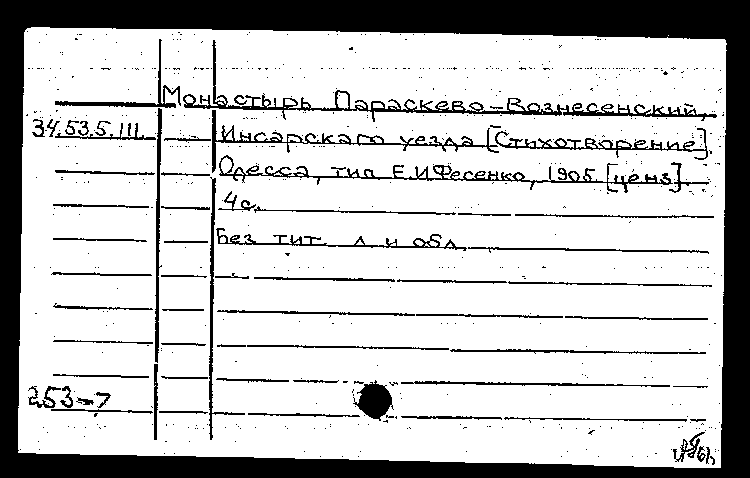 Монастырь Параскево-Вознесенский,
34.53.5.III. Инсарскаго уезда [Стихотворение].
Одесса, тип Е.И.Фесенко, 1905 [ценз].
4с.
Без тит л и обл
253-7